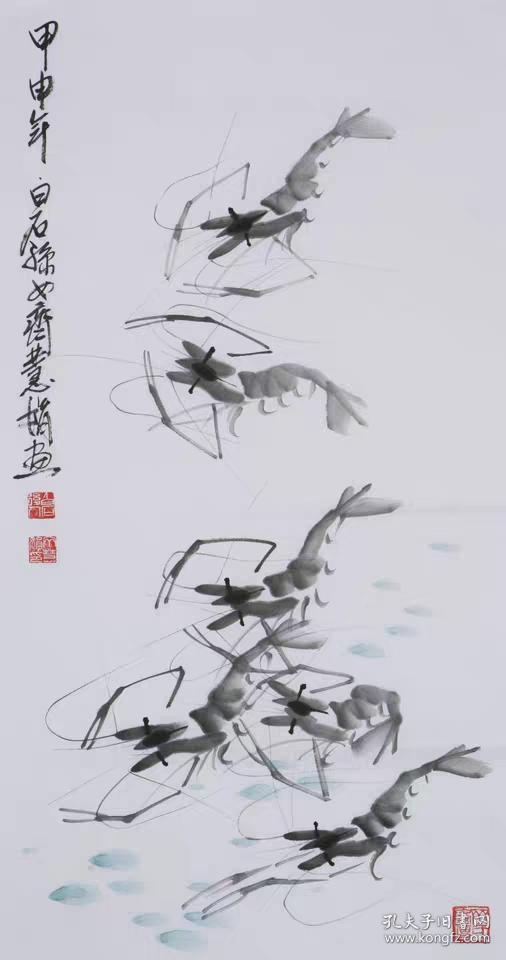 甲申年白石孫女齊慧娟畫
孔夫子旧书网
www.kongfz.com